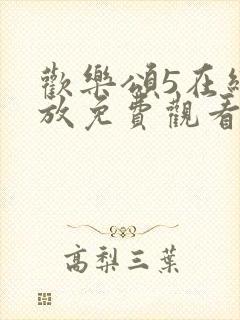 歡樂頌5在線
放免費觀看
高梨三葉